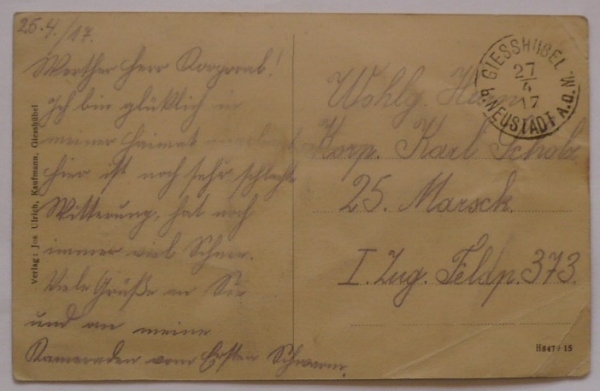 25.4./17.
Werther Herr Korporal!
Ich bin glücklich in
meiner Heimat
hier ist noch sehr schlechte
Witterung, hat noch
immer viel Schnee.
Viele Grüße an Sie
und an meine
Kameraden vom Ersten Schwarm.
Verlag: Jos Ulrich, Kaufmann, Giesshübel
GIESSHÜBEL
27
4
17
b. NEUSTADT A.D.M.
Wohlg. Herrn
Korp. Karl Scholz
25. Marsck.
I. Zug. Feldp. 373.
H847/15